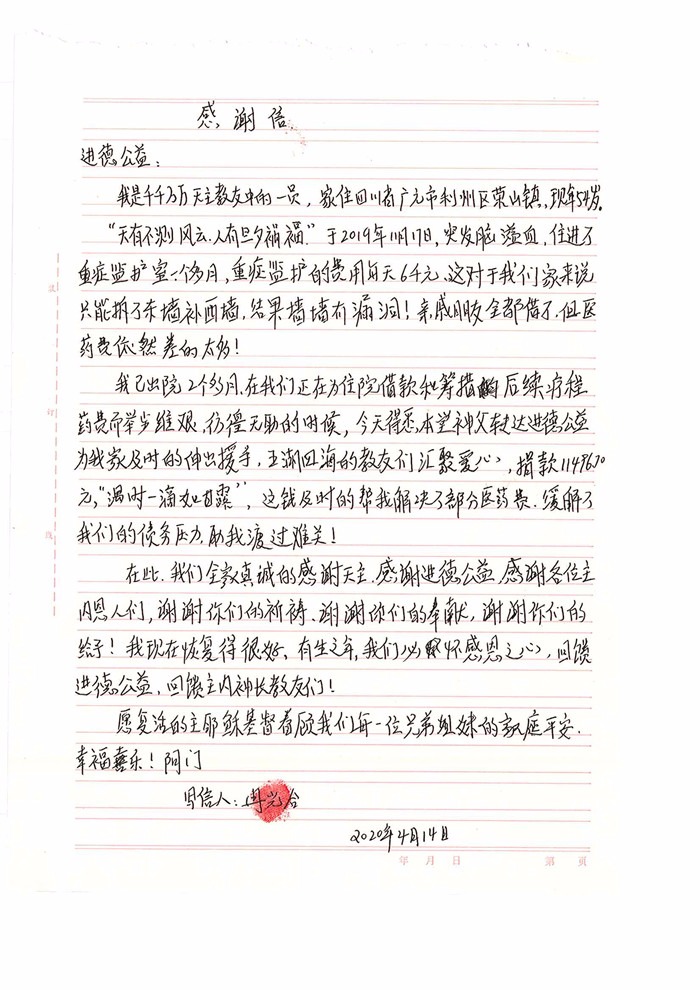 感谢信
进德公益：
我是千千万万天主教友中的一员，家住四川省广元市利州区荣山镇，现年54岁。
“天有不测风云，人有旦夕祸福”于2019年11月17日，突发脑溢血，住进了
重症监护室一个多月，重症监护的费用每天6千元，这对于我们家来说
只能拆了东墙补西墙，结果墙墙有漏洞！亲戚朋友全部借了，但医
药费依然差的太多！
我已出院2个多月，在我们正在为住院借款和筹措后续疗程
药费而举步维艰、彷徨无助的时候，今天得悉，本堂神父转达进德公益
为我家及时的伸出援手，五湖四海的教友们汇聚爱心，捐款11496.70
元，“渴时一滴如甘露”，这钱及时的帮我解决了部分医药费，缓解了
我们的债务压力，助我渡过难关！
在此，我们全家真诚的感谢天主，感谢进德公益，感谢各位主
内恩人们，谢谢你们的祈祷、谢谢你们的奉献，谢谢你们的
给予！我现在恢复得很好，有生之年，我们必怀感恩之心，回馈
进德公益，回馈主内神长教友们！
愿复活的主耶稣基督看顾我们每一位兄弟姐妹的家庭平安、
幸福喜乐！阿门
写信人：冉光台
2020年4月14日
年 月 日 第 页
装
订
线